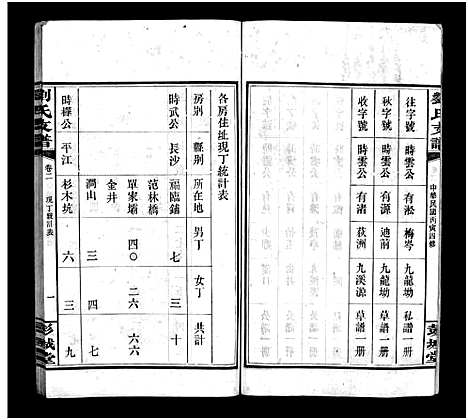 劉氏支譜
中華民國丙寅四修
彭城堂
往字號 時雲公 有淞 梅岑 私譜一冊
秋字號 時雲公 迪前 九龍坳 草譜一冊
收字號 時雲公 有渚 荻洲 九溪源 草譜一冊
各房住址現丁統計表
房別 縣別 所在地 男丁 女丁 共計
時武公 長沙 福臨鋪 七 三 十
范林橋
單家塅 四〇 二六 六六
金井
澗山 三 四 七
時櫸公 平江 杉木坑 六 三 九
劉氏支譜
卷二
現丁統計表
一
彭城堂